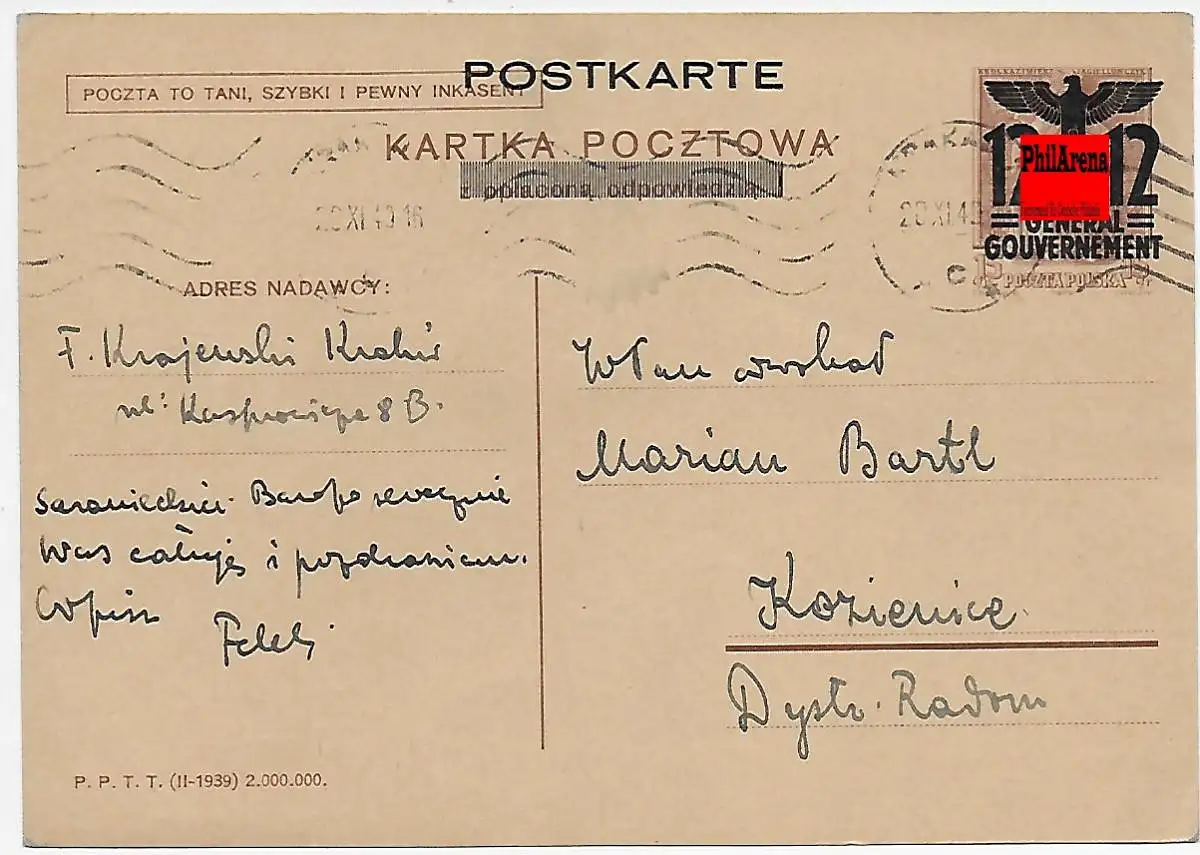 POSTKARTE
POCZTA TO TANI, SZYBKI I PEWNY INKASENT
KARTKA POCZTOWA
z opłaconą odpowiedzią
12 12
PhilArena
GENERAL
GOUVERNEMENT
15 POCZTA POLSKA 15
KRAKÓW
20 XI 40 16
20 XI 40
C
ADRES NADAWCY:
F. Krajewski Kraków
ul: 8 B.
serdecznie
Was całuję i pozdrawiam.
WPan adwokat
Marian Bartl
Kozienice
Dystr. Radom
P. P. T. T. (II-1939) 2.000.000.